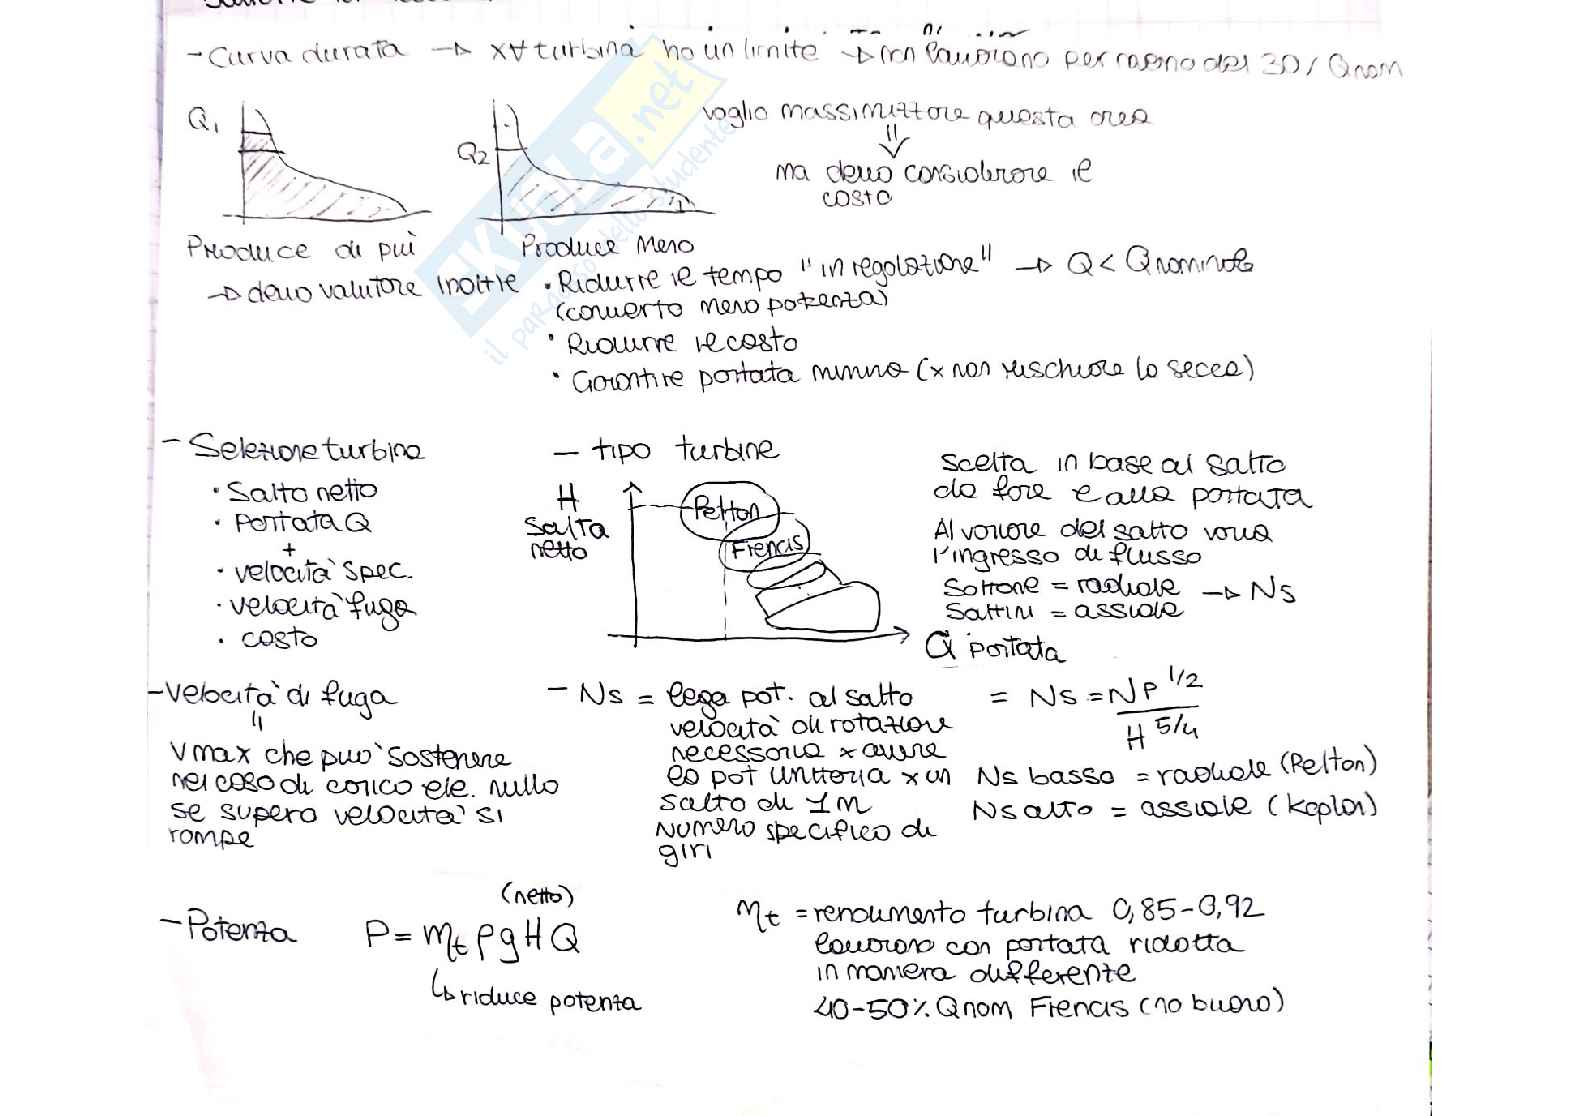 - Curva durata → x ∀ turbina ho un limite → non lavorano per meno del 30% Qnom
Q1
Q2
voglio massimizzare questa area
⇓
ma devo considerare il
costo
Produce di più
Produce meno
→ devo valutare inoltre
• Ridurre il tempo "in regolazione" → Q < Qnominale
(converto meno potenza)
• Ridurre il costo
• Garantire portata minima (x non rischiare la secca)
- Selezione turbina
• Salto netto
• Portata Q
+
• velocità spec.
• velocità fuga
• costo
- tipo turbine
H
Salto
netto
Pelton
Francis
Q portata
Scelta in base al salto
da fare e alla portata
Al variare del salto varia
l'ingresso di flusso
Saltone = radiale → Ns
Saltini = assiale
- Velocità di fuga
"
Vmax che può sostenere
nel caso di carico ele. nullo
se supero velocità si
rompe
- Ns = lega pot. al salto
velocità di rotazione
necessaria x avere
la pot unitaria x un
salto di 1m
Numero specifico di
giri
= Ns = N P^1/2 / H^5/4
Ns basso = radiale (Pelton)
Ns alto = assiale (Kaplan)
- Potenza
(netto)
P = ηt ρ g H Q
↳ riduce potenza
ηt = rendimento turbina 0,85-0,92
lavorano con portata ridotta
in maniera differente
40-50% Qnom Francis (no buono)
SKUOLA.net
il paradiso dello studente